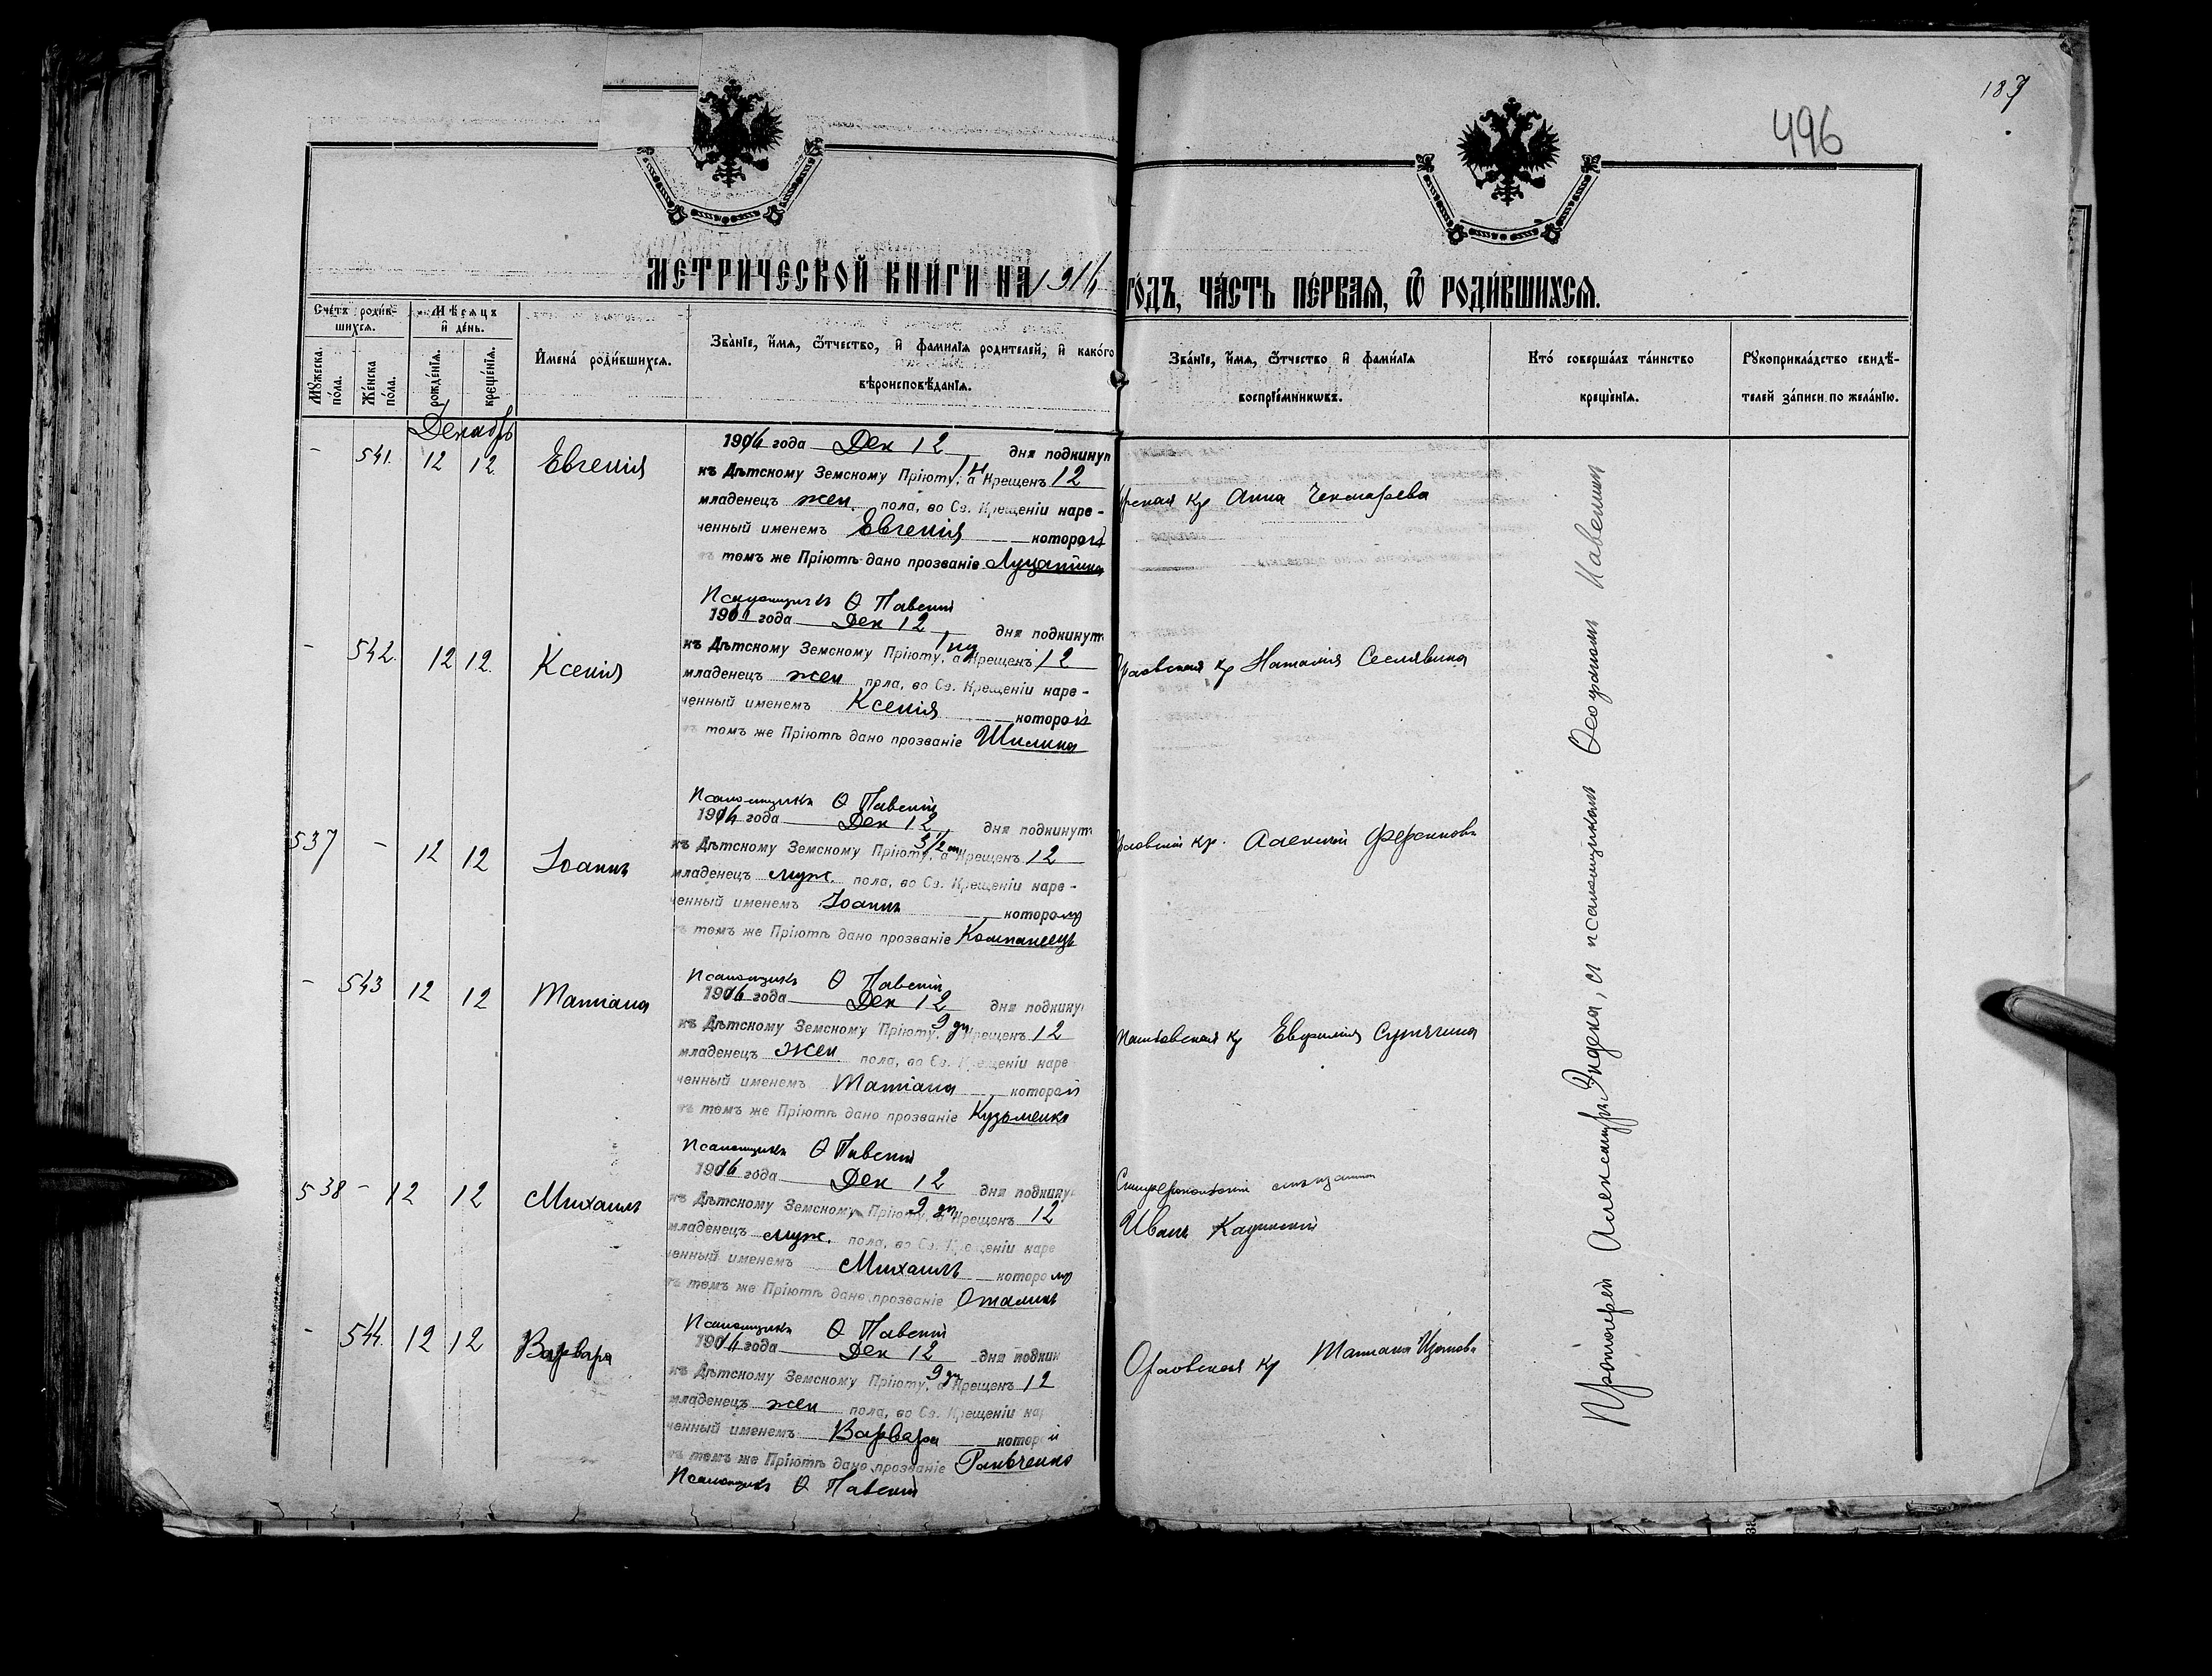 187
496
МЕТРИЧЕСКОЙ КНИГИ НА 1914 ГОДЪ, ЧАСТЬ ПЕРВАЯ, Ѡ РОДИВШИХСЯ.
Счетъ родив-
шихся.
Мѣсяцъ
и день.
Мужеска.
пола.
Женска
пола.
рожденія.
крещенія.
Имена родившихся.
Званіе, имя, ѿчество, и фамилія родителей, и какого
вѣроисповѣданія.
Званіе, имя, ѿчество и фамилія
воспріемниковъ.
Кто совершалъ таинство
крещенія.
Рукоприкладство свидѣ-
телей записи по желанію.
Декабрь
- 541. 12 12 Евгенія
1914 года Дек 12 дня подкинут
къ Дѣтскому Земскому Пріюту, а Крещенъ 12
младенецъ жен. пола, во Св. Крещеніи наре-
ченный именемъ Евгенія которой
въ томъ же Пріютѣ дано прозваніе
кр Анна Чекмарева
Псаломщикъ Ѳ Павскій
- 542. 12 12. Ксенія
191 года Дек 12 дня подкинут
къ Дѣтскому Земскому Пріюту, а Крещенъ 12
младенецъ жен пола, во Св. Крещеніи наре-
ченный именемъ Ксенія которой
въ томъ же Пріютѣ дано прозваніе Шилина
кр Наталія Сеславина
Псаломщикъ Ѳ Павскій
537 - 12 12 Іоаннъ
1914 года Дек 12 дня подкинут
къ Дѣтскому Земскому Пріюту, а Крещенъ 12
младенецъ муж. пола, во Св. Крещеніи наре-
ченный именемъ Іоаннъ которому
въ томъ же Пріютѣ дано прозваніе Компанеецъ
кр. Алексѣй
Псаломщикъ Ѳ Павскій
- 543 12 12 Татіана
1914 года Дек 12 дня подкину
къ Дѣтскому Земскому Пріюту, Крещенъ 12
младенецъ Жен. пола, во Св. Крещеніи наре
ченный именемъ Татіана которой
въ томъ же Пріютѣ дано прозваніе Кузьменко
кр Евфимія
Псаломщикъ Ѳ Павскій
538 - 12 12 Михаилъ
1914 года Дек 12 дня подкину
къ Дѣтскому Земскому Пріюту, а Крещенъ 12
младенецъ муж. пола, во Св. Крещеніи наре
ченный именемъ Михаилъ которому
въ томъ же Пріютѣ дано прозваніе
Иванъ
Псаломщикъ Ѳ Павскій
- 544. 12 12 Варвара
1914 года Дек 12 дня подкин
къ Дѣтскому Земскому Пріюту, а Крещенъ 12
младенецъ жен пола, во Св. Крещеніи нар
ченный именемъ Варвара которой
въ томъ же Пріютѣ дано прозваніе
Орловская кр Татіана
Псаломщикъ Ѳ Павскій
Протоіерей Александръ Эндека, съ псаломщикомъ Ѳеодоромъ Павскимъ